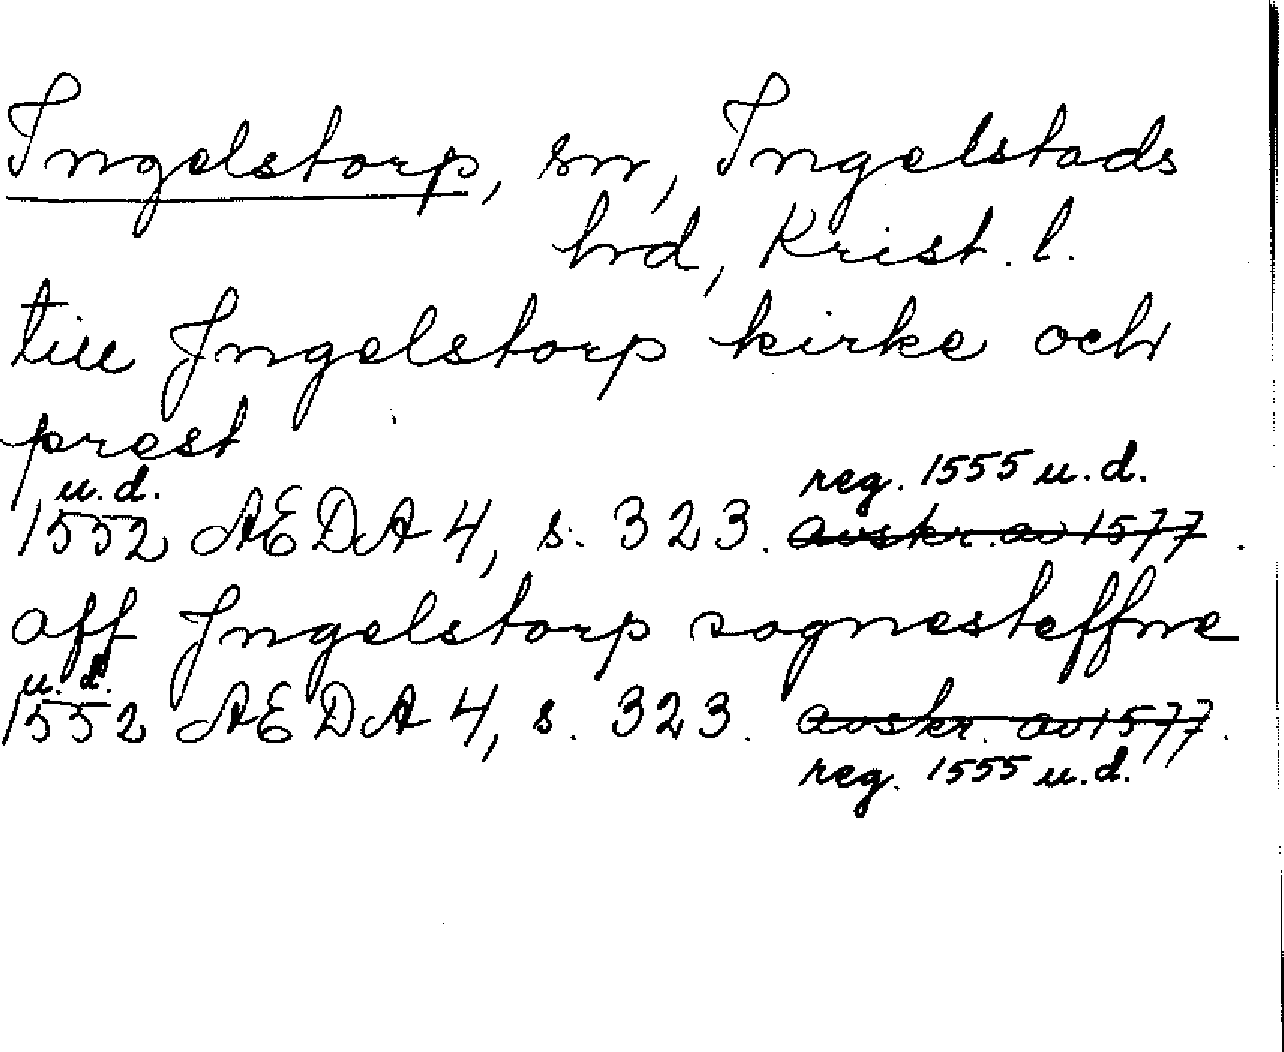 Ingelstorp, sn, Ingelstads
hrd, Krist. l.
till Jngelstorp kirke och
prest
u.d. reg. 1555 u.d.
1552 AEDA 4, s. 323. avskr. av 1577.
aff Jngelstorp sognesteffne
u.d.
1552 AEDA 4, s. 323. avskr. av 1577.
reg. 1555 u.d.